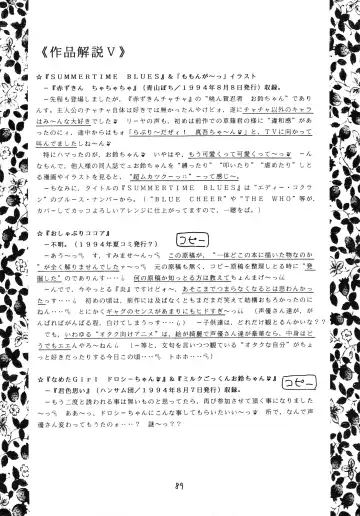 《作品解説Ⅴ》
☆『SUMMERTIME BLUES』&「ももんが〜っ」イラスト
－『赤ずきん ちゃちゃちゃ』(青山ぱち/1994年8月8日発行)収録。
－先程も登場しましたが、『赤ずきんチャチャ』の“暁ん賀忍者 お鈴ちゃん”であり
んす。主人公のチャチャ自体は好きでは無かったやけれど、逆にチャチャ以外のキャラ
はみ〜んな大好きです リーヤの声も、初めは前作での草薙君の様に“違和感”があ
ったのにィ、途中からはもォ「らぶり〜だぜィ! 真吾ちゃ〜ん」と、TVに向かって
叫んでましたしねっっ
特にハマッたのが、お鈴ちゃん いやはや、もう可愛くって可愛くってっっ ーん
なもんで、他人様の同人誌でェお鈴ちゃんを「縛ったり」「叩いたり」「虐めたり」しと
る漫画やイラストを見ると、“超ムカツクーっっ”って感じ〜っ。
－ちなみに、タイトルの『SUMMERTIME BLUES』は“エディー・コクラ
ン”のブルース・ナンバーから。(“BLUE CHEER”や“THE WHO”等が、
カバーしてカッコよろしいアレンジに仕上がってますので、一聴をば。)
☆『おしゃぶりココア』 コピー
－不明。(1994年夏コミ発行?)
－あう〜っ す、すみませ〜んっ この原稿が、“一体どこの本に描いた物なのか
”が全く解りませんでしたァっ 元の原稿も無く、コピー原稿を整理しとる時に“発
掘した”のでありますのでェっっ
－んでで、今やってる『炎』ですけどォっ、あそこまでつまらなくなるとは思わんかっ
たっす 初めの頃は、前作には及ばなくともまだまだ笑えて結構おもろかったのに
ねんっっ とにかくギャグのセンスがあまりにもヒドすぎっ (声優さん達が、が
んばればがんばる程、白けてしまうっす) －子供達は、どれだけ観とるんかいな??
－でも、いわゆる“オタク向けアニメ”は、絵が綺麗で声優さん達が豪華なら、中身はど
うでもエエんやろ〜ねん (－等と、文句を言いつつ観ている“オタクな自分”がちょ
っと好きだったりする今日この頃 トホホホ)
☆『なめたGirl ドロシーちゃん』&『ミルクごっくんお鈴ちゃん』 コピー
－『君色思い』(ハンサム団/1994年8月7日発行)収録。
－もう二度と誘われる事は無いものと思ってたら、再び参加させて頂く事になりました
〜っっ ああ〜っ、ドロシーちゃんにこんな事してもらいたいい〜っ 所で、なんで声
優さん変わってもうたのォ…? 謎〜っ??
89